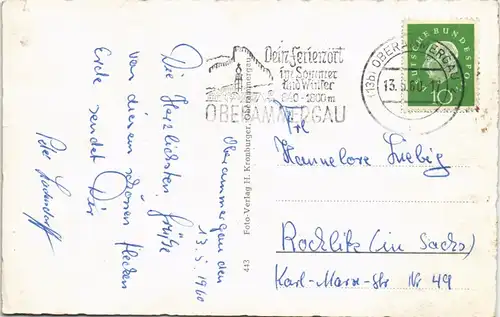 Oberammergau den
13.5.1960
Die Herzlichsten Grüße
von diesem schönen Flecken
Erde sendet Dir
Peter
443 Foto-Verlag H. Kronburger, Oberammergau
Dein Ferienort
im Sommer
und Winter
840-1800m
OBERAMMERGAU
(13b) OBERAMMERGAU
13.5.60
DEUTSCHE BUNDESPOST
10
Frl
Hannelore Liebig
Rochlitz (in Sachs)
Karl-Marx-Str Nr 49